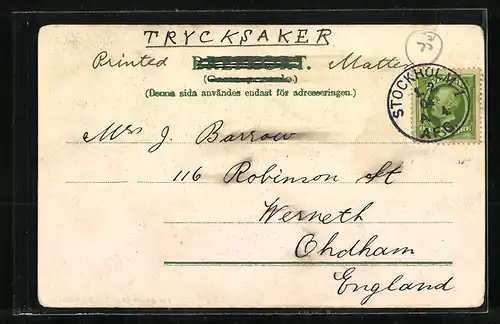 TRYCKSAKER
Printed BREFKORT. Matter
(Denna sida användes endast för adresseringen.)
STOCKHOLM 1
AFG.
Mrs J. Barrow
116 Robinson St
Werneth
Ohdham
England